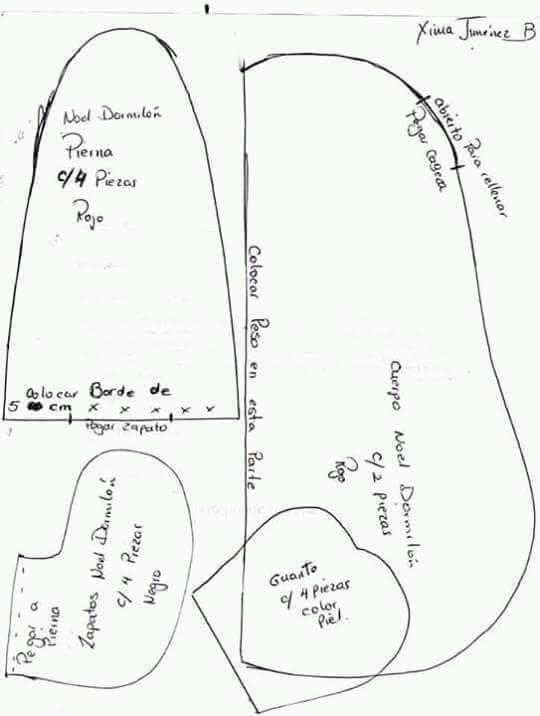 Xima Jiménez B
Noel Dormilón
Pierna
c/4 Piezas
Rojo
Colocar Borde de
5 cm x x x x x
Pegar Zapato
abierto Para rellenar
Pegar Cabeza
Colocar Peso en esta Parte
Cuerpo Noel Dormilón
c/2 piezas
Rojo
Zapatos Noel Dormilón
c/4 Piezas
Negro
Pegar a
Pierna
Guante
c/4 piezas
color
Piel.